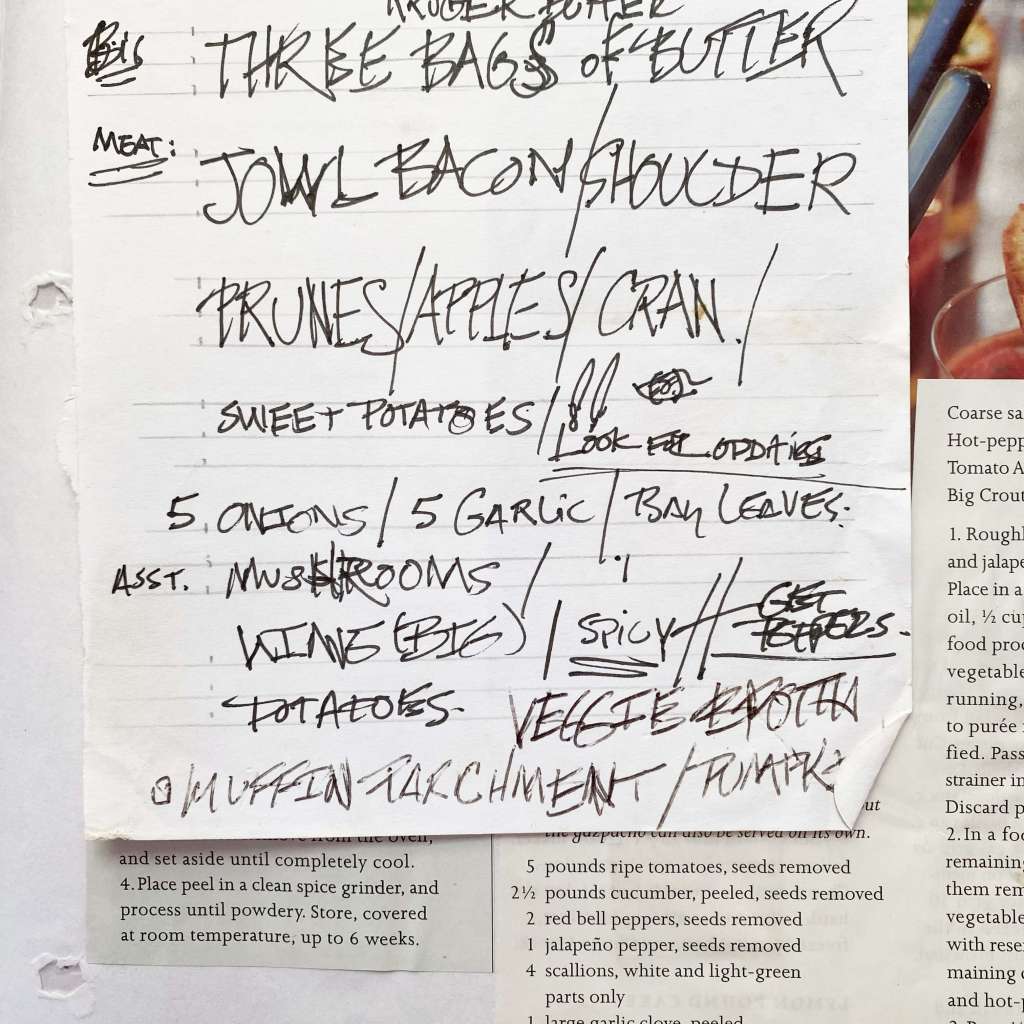 KROGER BUTTER
BIG THREE BAGS OF BUTTER
MEAT: JOWL BACON/SHOULDER
PRUNES/APPLES/CRAN./
SWEET POTATOES/!!
LOOK FOR UPDATES
5 ONIONS/5 GARLIC/BAY LEAVES.
ASST. MUSHROOMS /
WINE (BIG) / SPICY // GET PEPPERS.
POTATOES. VEGGIE BROTH
MUFFIN PARCHMENT/
from the oven,
and set aside until completely cool.
4. Place peel in a clean spice grinder, and
process until powdery. Store, covered
at room temperature, up to 6 weeks.
the gazpacho can also be served on its own.
5 pounds ripe tomatoes, seeds removed
2½ pounds cucumber, peeled, seeds removed
2 red bell peppers, seeds removed
1 jalapeño pepper, seeds removed
4 scallions, white and light-green
parts only
1 large garlic clove, peeled
Coarse sa
Hot-pepp
Tomato A
Big Crout
1. Roughl
and jalape
Place in a
oil, ½ cup
food proc
vegetable
running,
to purée
fied. Pass
strainer in
Discard p
2. In a foo
remaining
them rem
vegetable
with rese
maining
and hot-p